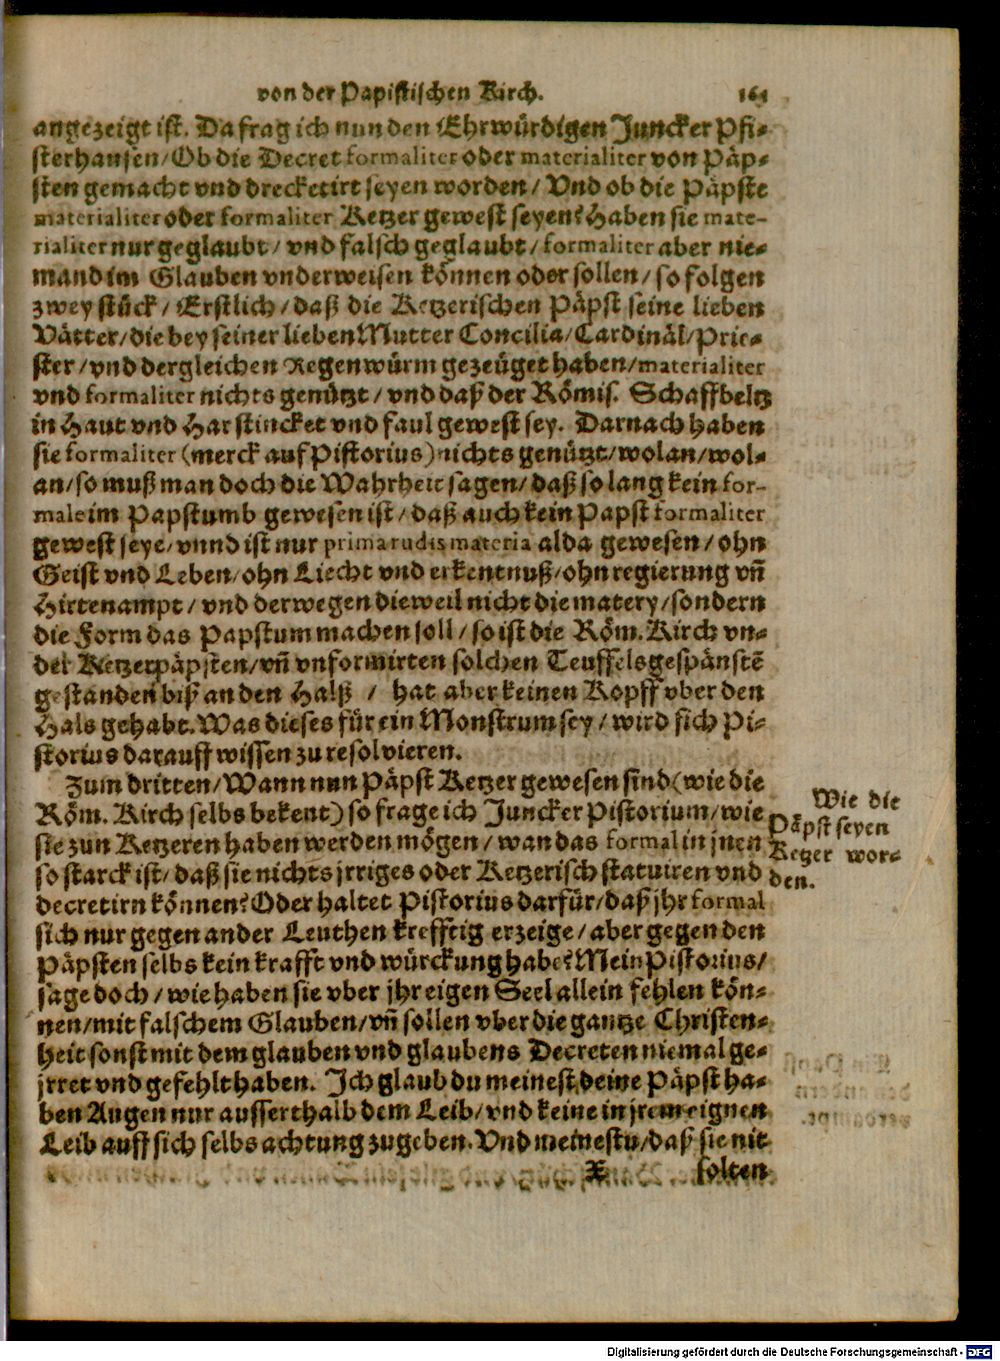 von der Papistischen Kirch. 161
angezeigt ist. Da frag ich nun den Ehrwürdigen Juncker Pfi-
sterhansen/ Ob die Decret formaliter oder materialiter von Päp-
sten gemacht vnd drecketirt seyen worden/ Vnd ob die Päpste
materialiter oder formaliter Ketzer gewest seyen? Haben sie mate-
rialiter nur geglaubt/ vnd falsch geglaubt/ formaliter aber nie-
mand im Glauben vnderweisen können oder sollen/ so folgen
zwey stück/ Erstlich/ daß die Ketzerischen Päpst seine lieben
Vätter/ die bey seiner lieben Mutter Concilia/ Cardinäl/ Prie-
ster/ vnd dergleichen Regenwürm gezeüget haben/ materialiter
vnd formaliter nichts genützt/ vnd daß der Römis. Schaffbeltz
in Haut vnd Har stincket vnd faul gewest sey. Darnach haben
sie formaliter (merck auf Pistorius) nichts genützt/ wolan/ wol-
an/ so muß man doch die Wahrheit sagen/ daß so lang kein for-
male im Papstumb gewesen ist/ daß auch kein Papst formaliter
gewest seye/ vnnd ist nur prima rudis materia alda gewesen/ ohn
Geist vnd Leben/ ohn Liecht vnd erkentnuß/ ohn regierung vñ
Hirtenampt/ vnd derwegen dieweil nicht die matery/ sondern
die Form das Papstum machen soll/ so ist die Röm. Kirch vn-
der Ketzerpäpsten/ vñ vnformirten solchen Teuffelsgespänstẽ
gestanden biß an den Halß / hat aber keinen Kopff vber den
Hals gehabt. Was dieses für ein Monstrum sey/ wird sich Pi-
storius darauff wissen zu resolvieren.
Zum dritten/ Wann nun Päpst Ketzer gewesen sind (wie die
Röm. Kirch selbs bekent) so frage ich Juncker Pistorium/ wie
sie zun Ketzeren haben werden mögen/ wan das formal in jnen
so starck ist/ daß sie nichts jrriges oder Ketzerisch statuiren vnd
decretirn können? Oder haltet Pistorius darfür/ daß jhr formal
sich nur gegen ander Leuthen krefftig erzeige/ aber gegen den
Päpsten selbs kein krafft vnd würckung habe? Mein Pistorius/
sage doch/ wie haben sie vber jhr eigen Seel allein fehlen kön-
nen/ mit falschem Glauben/ vñ sollen vber die gantze Christen-
heit sonst mit dem glauben vnd glaubens Decreten niemal ge-
jrret vnd gefehlt haben. Ich glaub du meinest, deine Päpst ha-
ben Augen nur ausserthalb dem Leib/ vnd keine in jrem eignen
Leib auff sich selbs achtung zugeben. Vnd meinestu/ daß sie nit
X solten
Wie die
Päpst seyen
Ketzer wor-
den.
Digitalisierung gefördert durch die Deutsche Forschungsgemeinschaft - DFG